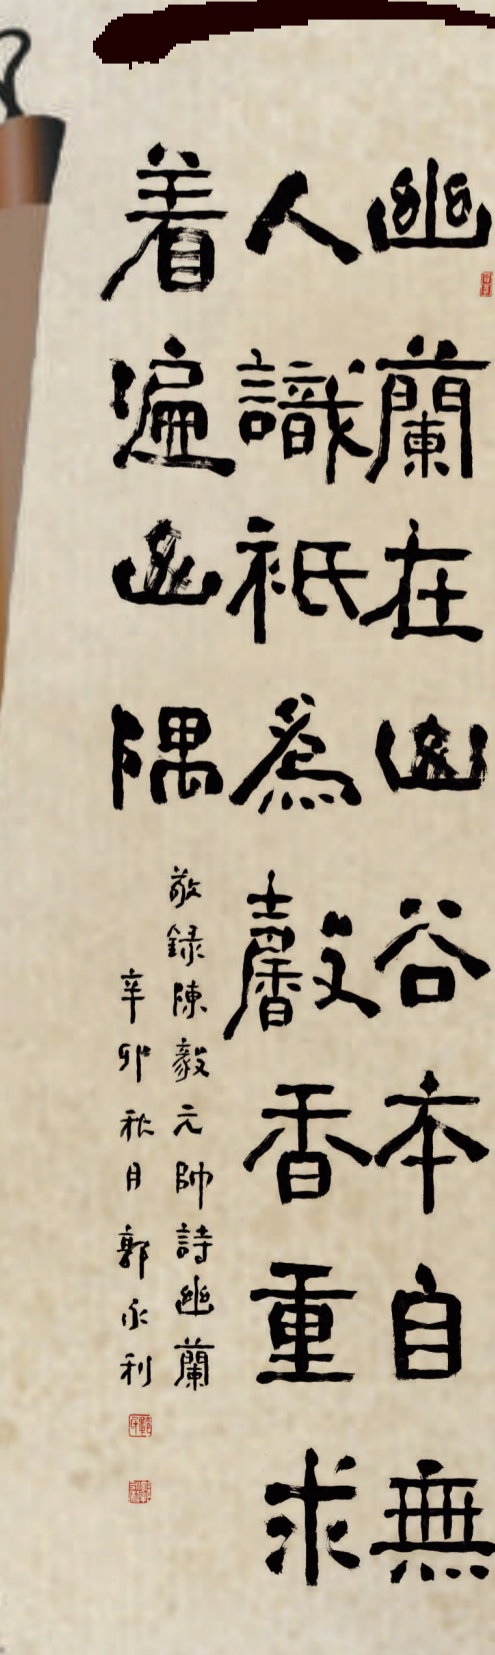 幽蘭在山谷本自無
人識祇爲馨香重求
着遍山隅
敬録陳毅元帥詩幽蘭
辛卯秋月郭永利